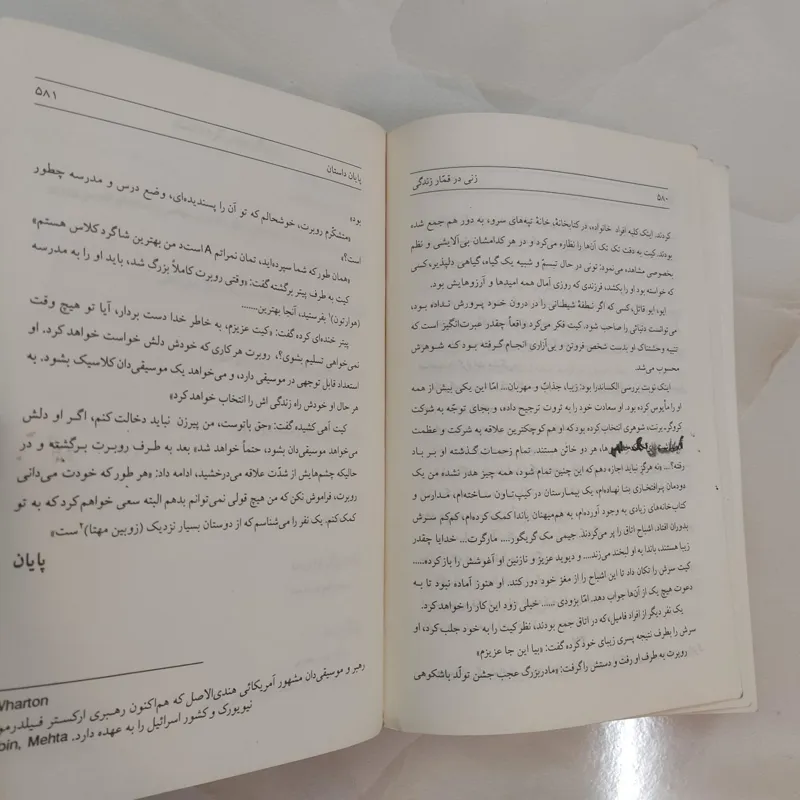 ۵۸۰
زنی در قمار زندگی
کردند. اینک کلیه افراد خانواده، در کتابخانهٔ، خانهٔ تپه‌های سرو، به دور هم جمع شده
بودند. کیت به دقت تک تک آن‌ها را نظاره می‌کرد و در هر کدامشان بی‌آلایشی و نظم
بخصوصی مشاهده می‌نمود: تونی در حال تبسم و شبیه یک گیاه، گیاهی دلپذیر، کسی
که خواسته بود او را بکشد، فرزندی که روزی آمال همه امیدها و آرزوهایش بود.
ایو، ایو قاتل، کسی که اگر نطفهٔ شیطانی را در درون خود پرورش نداده بود،
می‌توانست دنیائی را صاحب شود. کیت فکر می‌کرد واقعاً چقدر عبرت‌انگیز است که
تنبیه وحشتناک او بدست شخصی فروتن و بی‌آزاری انجام گرفته بود که شوهرش
محسوب می‌شد.
اینک نوبت بررسی الکساندرا بود: زیبا، جذاب و مهربان... امّا این یکی بیش از همه
او را مأیوس کرده بود. او سعادت خود را به ثروت ترجیح داده، و بجای توجّه به شرکت
کروگر ـ برنت، شوهری انتخاب کرده بود که او هم کوچکترین علاقه به شرکت و عظمت
ها، هر دو خائن هستند. تمام زحمات گذشته او بر باد
رفته؟... «نه هرگز نباید اجازه دهم که این چنین تمام شود، همه چیز هدر نشده من یک
دودمان پرافتخاری بنا نهاده‌ام، یک بیمارستان در کیپ‌تاون ساخته‌ام، مدارس و
کتاب‌خانه‌های زیادی به وجود آورده‌ام، به هم‌میهنان باندا کمک کرده‌ام، کم‌کم سرش
بدوران افتاد، اشباح اتاق را پر می‌کردند. جیمی مک گریگور..... مارگرت... خدایا چقدر
زیبا هستند، باندا به او لبخند می‌زند.... و دیوید عزیز و نازنین او آغوشش را باز کرده.....
کیت سرش را تکان داد تا این اشباح را از مغز خود دور کند. او هنوز آماده نبود تا به
دعوت هیچ یک از آن‌ها جواب دهد. امّا بزودی ...... خیلی زود این کار را خواهد کرد.
یک نفر دیگر از افراد فامیل، که در اتاق جمع بودند، نظر کیت را به خود جلب کرد، او
سرش را بطرف نتیجه پسری زیبای خود کرده گفت: «بیا این جا عزیزم»
روبرت به طرف او رفت و دستش را گرفت: «مادربزرگ عجب جشن تولّد باشکوهی
پایان داستان
۵۸۱
بود»
«متشکّرم روبرت، خوشحالم که تو آن را پسندیده‌ای، وضع درس و مدرسه چطور
است؟»
«همان طور که شما سپرده‌اید، تمان نمراتم A است، من بهترین شاگرد کلاس هستم»
کیت به طرف پیتر برگشته گفت: «وقتی روبرت کاملاً بزرگ شد، باید او را به مدرسه
(هوارتون)۱ بفرستید، آنجا بهترین.......
پیتر خنده‌ای کرده گفت: «کیت عزیزم، به خاطر خدا دست بردار، آیا تو هیچ وقت
نمی‌خواهی تسلیم بشوی؟، روبرت هر کاری که خودش دلش خواست خواهد کرد. او
استعداد قابل توجهی در موسیقی دارد، و می‌خواهد یک موسیقی‌دان کلاسیک بشود. به
هر حال او خودش راه زندگی اش را انتخاب خواهد کرد»
کیت آهی کشیده گفت: «حق باتوست، من پیرزن نباید دخالت کنم، اگر او دلش
می‌خواهد موسیقی‌دان بشود، حتماً خواهد شد» بعد به طرف روبرت برگشته و در
حالیکه چشم‌هایش از شدّت علاقه می‌درخشید، ادامه داد: «هر طور که خودت می‌دانی
روبرت، فراموش نکن که من هیچ قولی نمی‌توانم بدهم البته سعی خواهم کرد که به تو
کمک کنم. یک نفر را می‌شناسم که از دوستان بسیار نزدیک (زوبین مهتا)۲ ست»
پایان
Wharton
رهبر و موسیقی‌دان مشهور آمریکائی هندی‌الاصل که هم‌اکنون رهبری ارکستر
نیویورک و کشور اسرائیل را به عهده دارد. bin, Mehta